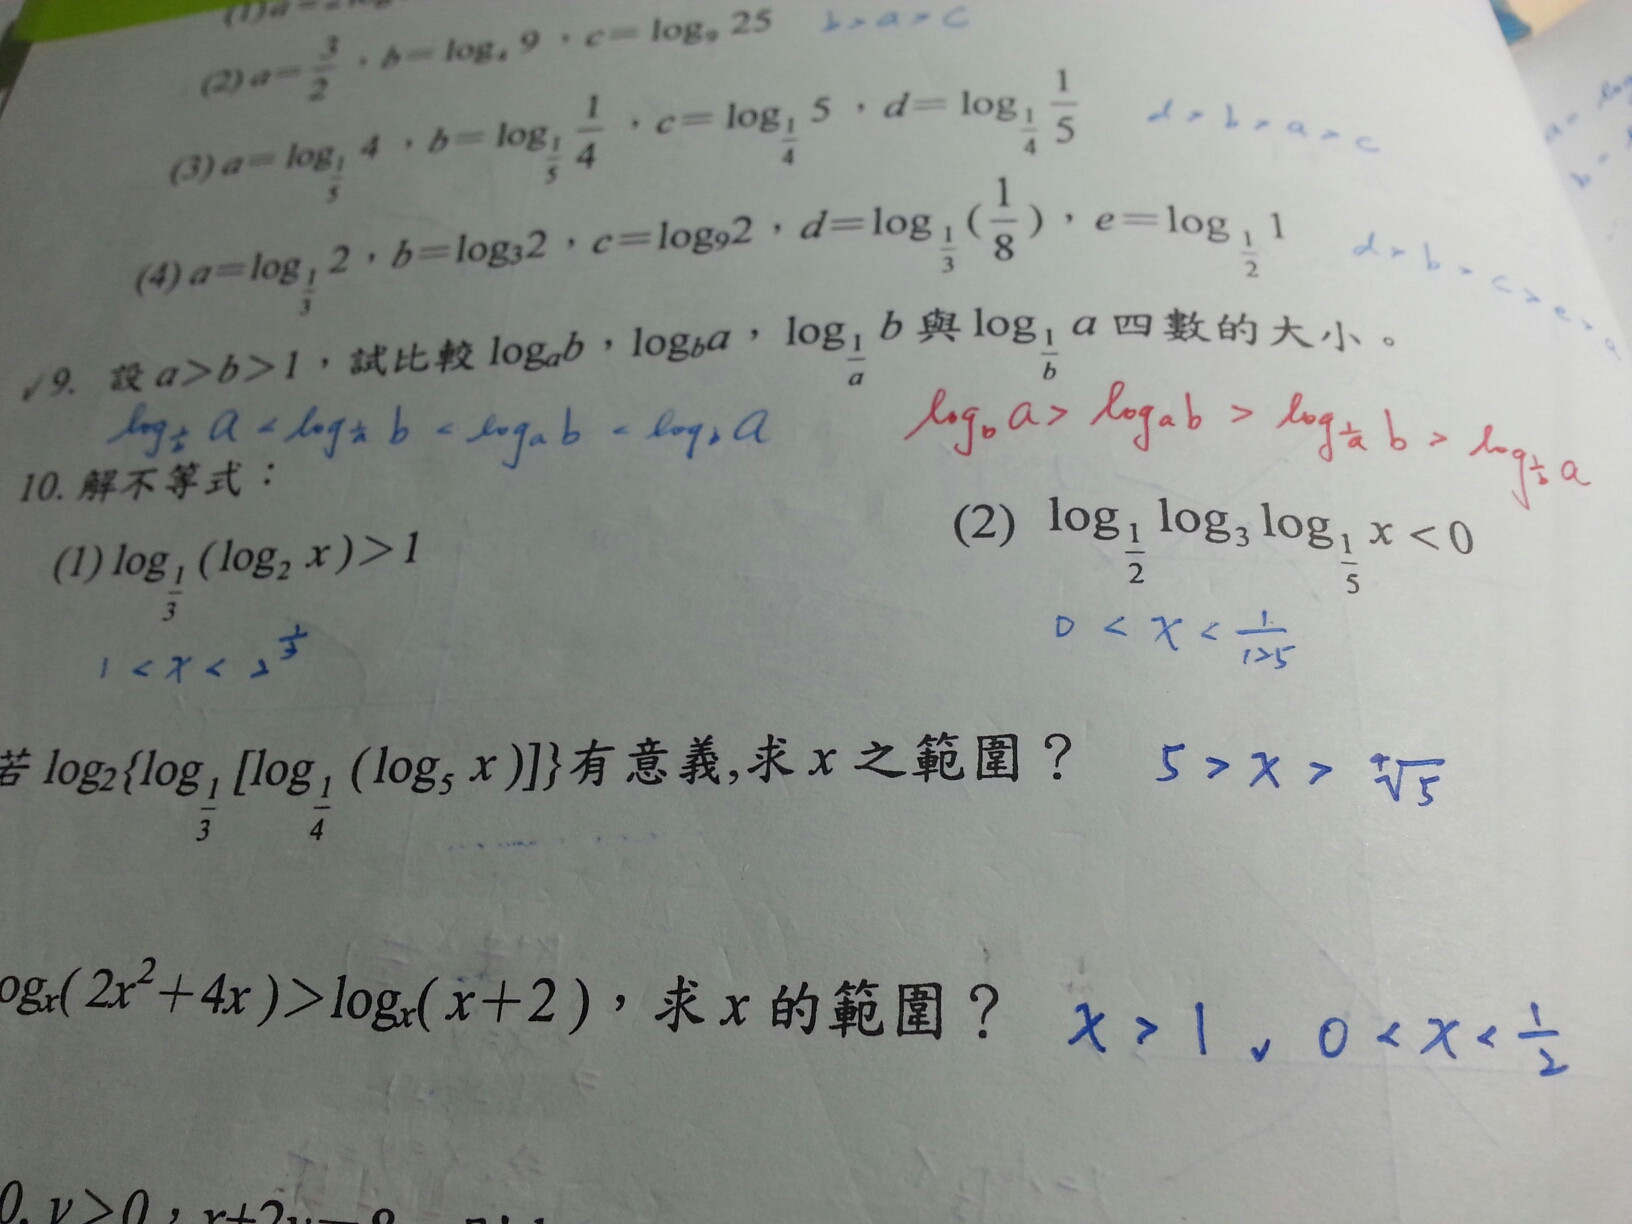 (2) a=3/2，b=log₄ 9，c=log₉ 25 b>a>c
(3) a=log_{1/5} 4，b=log_{1/5} 1/4，c=log_{1/4} 5，d=log_{1/4} 1/5 d>b>a>c
(4) a=log_{1/3} 2，b=log₃2，c=log₉2，d=log_{1/3}(1/8)，e=log_{1/2} 1 d>b>c>e>a
✓9. 設 a>b>1，試比較 logₐb，log_b a，log_{1/a} b 與 log_{1/b} a 四數的大小。
log_{1/b} a < log_{1/a} b < logₐ b < log_b a
log_b a > logₐ b > log_{1/a} b > log_{1/b} a
10. 解不等式：
(1) log_{1/3} (log₂ x)>1
(2) log_{1/2} log₃ log_{1/5} x<0
1 < x < 2^{1/3}
0 < x < 1/125
若 log₂{log_{1/3} [log_{1/4} (log₅ x)]}有意義,求 x 之範圍？ 5 > x > ⁴√5
ogₓ(2x²+4x)>logₓ(x+2)，求 x 的範圍？ x > 1 , 0 < x < 1/2